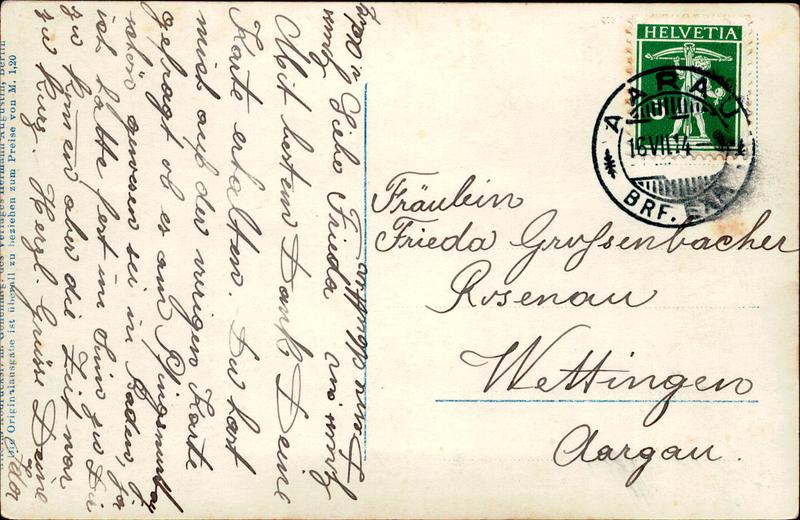 HELVETIA
AARAU
16 VII 14
BRF.
Fräulein
Frieda Grossenbacher
Rosenau
Wettingen
Aargau.
Liebe Frieda
Mit bestem Dank Deine
Karte erhalten. Du hast
mich auf der vorigen Karte
gefragt ob es am Pfingsmontag
schön gewesen sei in Baden, ja
ich hatte fest im Sinn zu Dir
zu kommen aber die Zeit war
zu kurz. Herzl. Grüsse Deine
Ida
Genehmig. des Verlages Hermann Augustin, Berlin
Originalausgabe ist überall zu beziehen zum Preise von M. 1,20